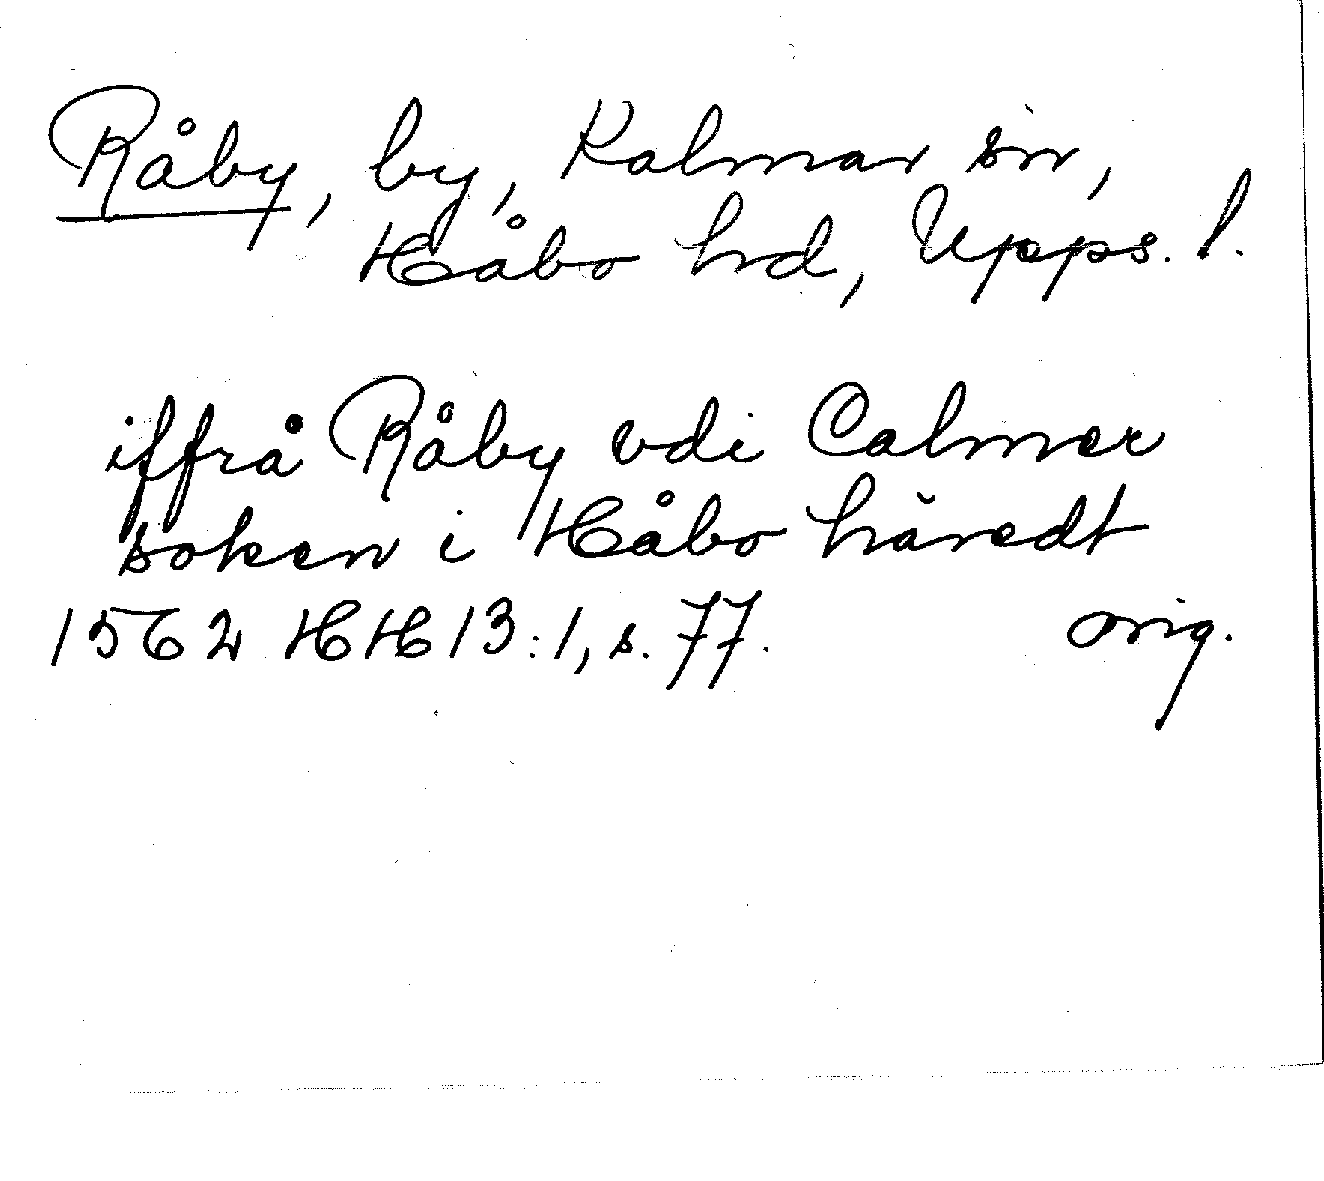 Råby, by, Kalmar sn,
Håbo hd, Upps. l.
iffrå Råby vdi Calmer
soken i Håbo häredt
1562 HH 13:1, s. 77. orig.